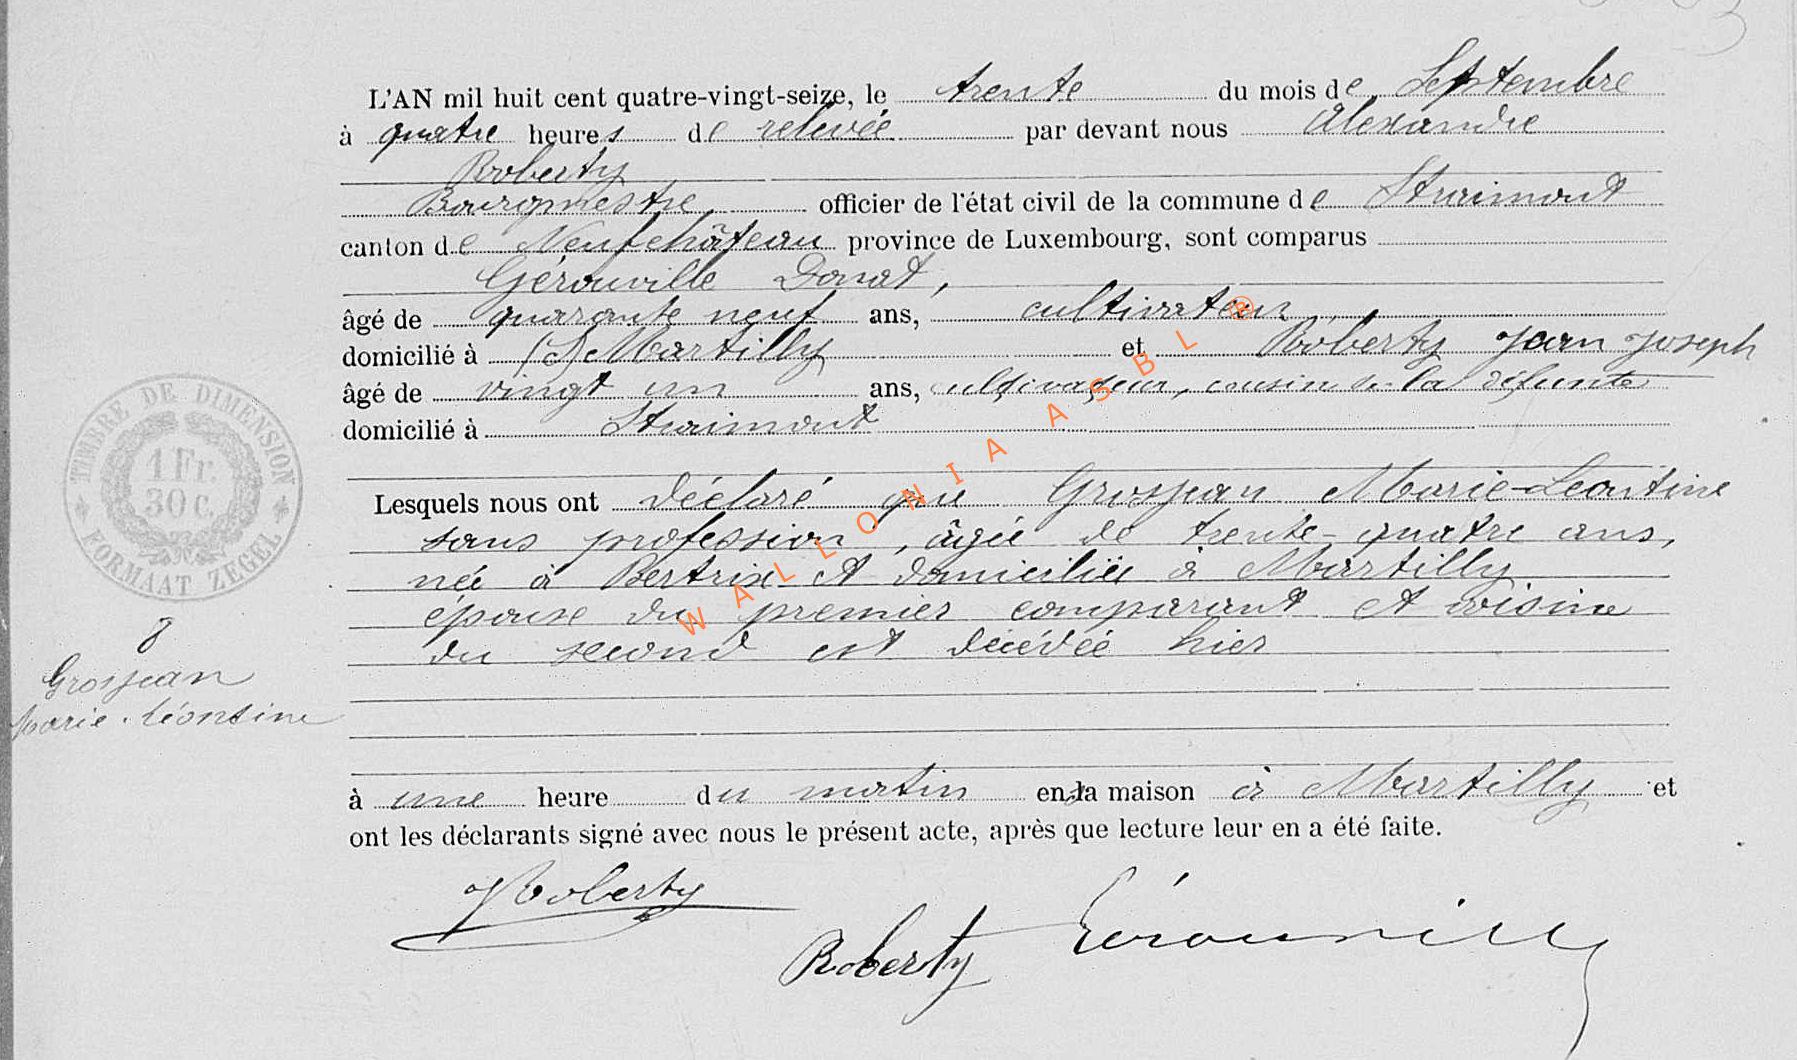 L'AN mil huit cent quatre-vingt-seize, le trente du mois de Septembre
à quatre heures de relevée par devant nous Alexandre
Roberty
Bourgmestre, officier de l'état civil de la commune de Straimont
canton de Neufchâteau province de Luxembourg, sont comparus
Gérouville Donat,
âgé de quarante neuf ans, cultivateur
domicilié à (S) Martilly et Roberty Jean Joseph
âgé de vingt un ans, cultivateur, cousin de la défunte
domicilié à Straimont
TIMBRE DE DIMENSION
1 Fr
30 c.
FORMAAT ZEGEL
Lesquels nous ont déclaré que Grosjean Marie-Léontine
sans profession, âgée de trente-quatre ans,
née à Bertrix et domiciliée à Martilly
épouse du premier comparant et voisine
du second est décédée hier
8
Grosjean
Marie-Léontine
à une heure du matin en sa maison à Martilly et
ont les déclarants signé avec nous le présent acte, après que lecture leur en a été faite.
Roberty
Roberty Gérouville
WALLONIA ASBL ®